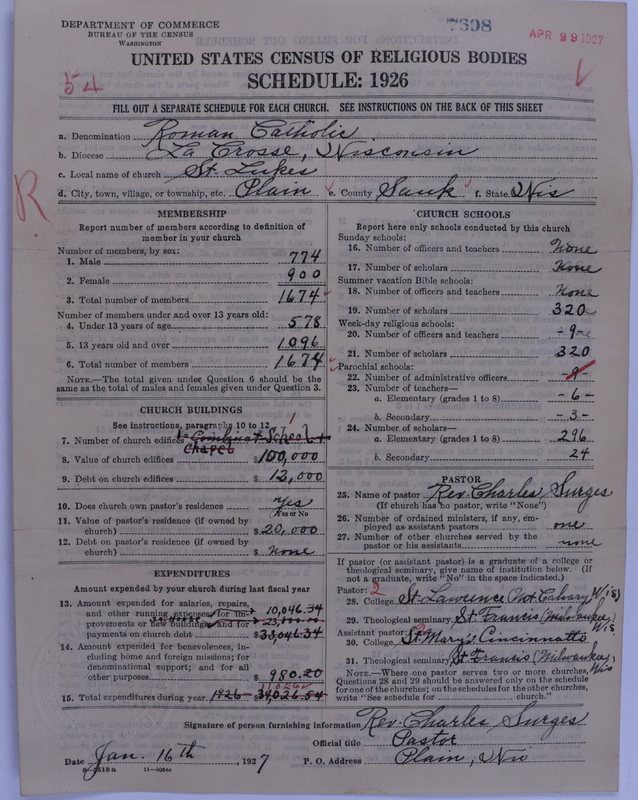 DEPARTMENT OF COMMERCE
BUREAU OF THE CENSUS
WASHINGTON
7698
APR 29 1927
UNITED STATES CENSUS OF RELIGIOUS BODIES
SCHEDULE: 1926
54
FILL OUT A SEPARATE SCHEDULE FOR EACH CHURCH. SEE INSTRUCTIONS ON THE BACK OF THIS SHEET
a. Denomination Roman Catholic
b. Diocese La Crosse, Wisconsin
c. Local name of church St. Lukes
d. City, town, village, or township, etc. Plain e. County Sauk f. State Wis
R
MEMBERSHIP
Report number of members according to definition of
member in your church
Number of members, by sex:
1. Male 774
2. Female 900
3. Total number of members 1674
Number of members under and over 13 years old:
4. Under 13 years of age 578
5. 13 years old and over 1096
6. Total number of members 1674
NOTE.—The total given under Question 6 should be
same as the total of males and females given under Question 3.
CHURCH BUILDINGS
See instructions, paragraphs 10 to 12
7. Number of church edifices 1 School +
Chapel
8. Value of church edifices $100,000
9. Debt on church edifices $13,000
10. Does church own pastor's residence? Yes
Yes or No
11. Value of pastor's residence (if owned by
church) $20,000
12. Debt on pastor's residence (if owned by
church) $None
EXPENDITURES
Amount expended by church during last fiscal year
13. Amount expended for salaries, repairs,
and other running expenses; for im- 10,046.34
provements or new buildings; and for
payments on church debt $33046.34
14. Amount expended for benevolences, in-
cluding home and foreign missions; for
denominational support; and for all
other purposes $980.20
15. Total expenditures during year 1926 34,026.54
CHURCH SCHOOLS
Report here only schools conducted by this church
Sunday schools:
16. Number of officers and teachers None
17. Number of scholars None
Summer vacation Bible schools:
18. Number of officers and teachers None
19. Number of scholars 320
Week-day religious schools:
20. Number of officers and teachers -9-
21. Number of scholars 320
Parochial schools:
22. Number of administrative officers
23. Number of teachers—
a. Elementary (grades 1 to 8) -6-
b. Secondary -3-
24. Number of scholars—
a. Elementary (grades 1 to 8) 296
b. Secondary 24
PASTOR
25. Name of pastor Rev. Charles Surges
(If church has no pastor, write "None")
26. Number of ordained ministers, if any, em-
ployed as assistant pastors one
27. Number of other churches served by the
pastor or his assistants none
If pastor (or assistant pastor) is a graduate of a college or
theological seminary, give name of institution below. (If
not a graduate, write "No" in the space indicated.)
Pastor: 2
28. College St. Lawrence (Mt. Calvary Wis)
29. Theological seminary St. Francis (Milwaukee) Wis
Assistant pastor:
30. College St. Mary's Cincinnatti
31. Theological seminary St. Francis (Milwaukee) Wis
NOTE.—Where one pastor serves two or more churches,
Questions 28 and 29 should be answered only on the schedule
for one of the churches; on the schedules for the other churches,
write "See schedule for church."
Signature of person furnishing information Rev. Charles Surges
Official title Pastor
Date Jan. 16th, 1927 P. O. Address Plain, Wis
8-5518a 11—9054